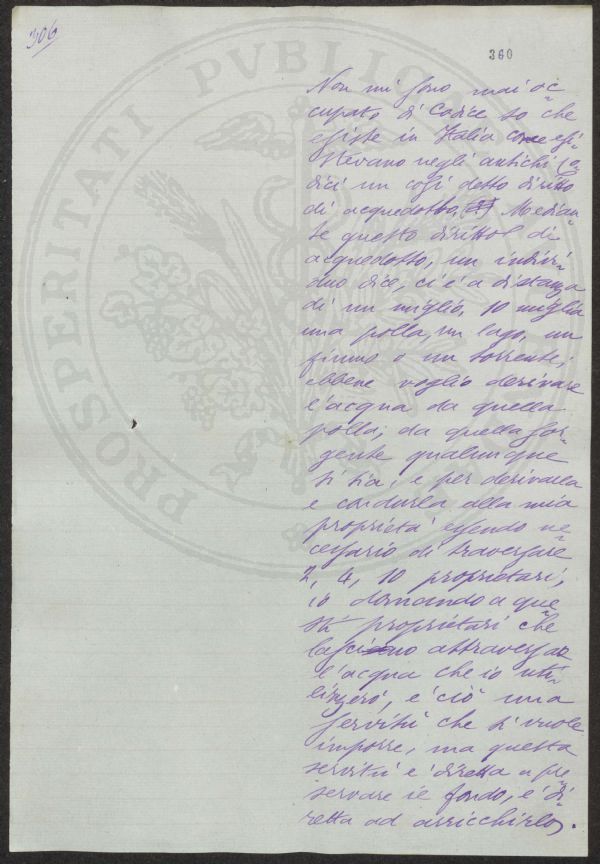 306
360
PROSPERITATI PVBLICAE
Non mi sono mai oc
cupato di Codice so che
esiste in Italia come esi-
stevano negli antichi Co
dici un così detto diritto
di acquedotto. Median-
te questo diritto di
acquedotto, un indivi-
duo dice, ci è a distanza
di un miglio, 10 miglia
una polla, un lago, un
fiume o un torrente,
ebbene voglio derivare
l'acqua da quella
polla, da quella sor-
gente qualunque
si sia, e per derivarla
e condurla alla mia
proprietà essendo ne
cessario di traversare
2, 4, 10 proprietari,
io domando a que
sti proprietari che
lascino attraversare
l'acqua che io uti-
lizzerò, e ciò una
servitù che si vuole
imporre, ma questa
servitù è diretta a pre
servare il fondo, è di-
retta ad arricchirlo.